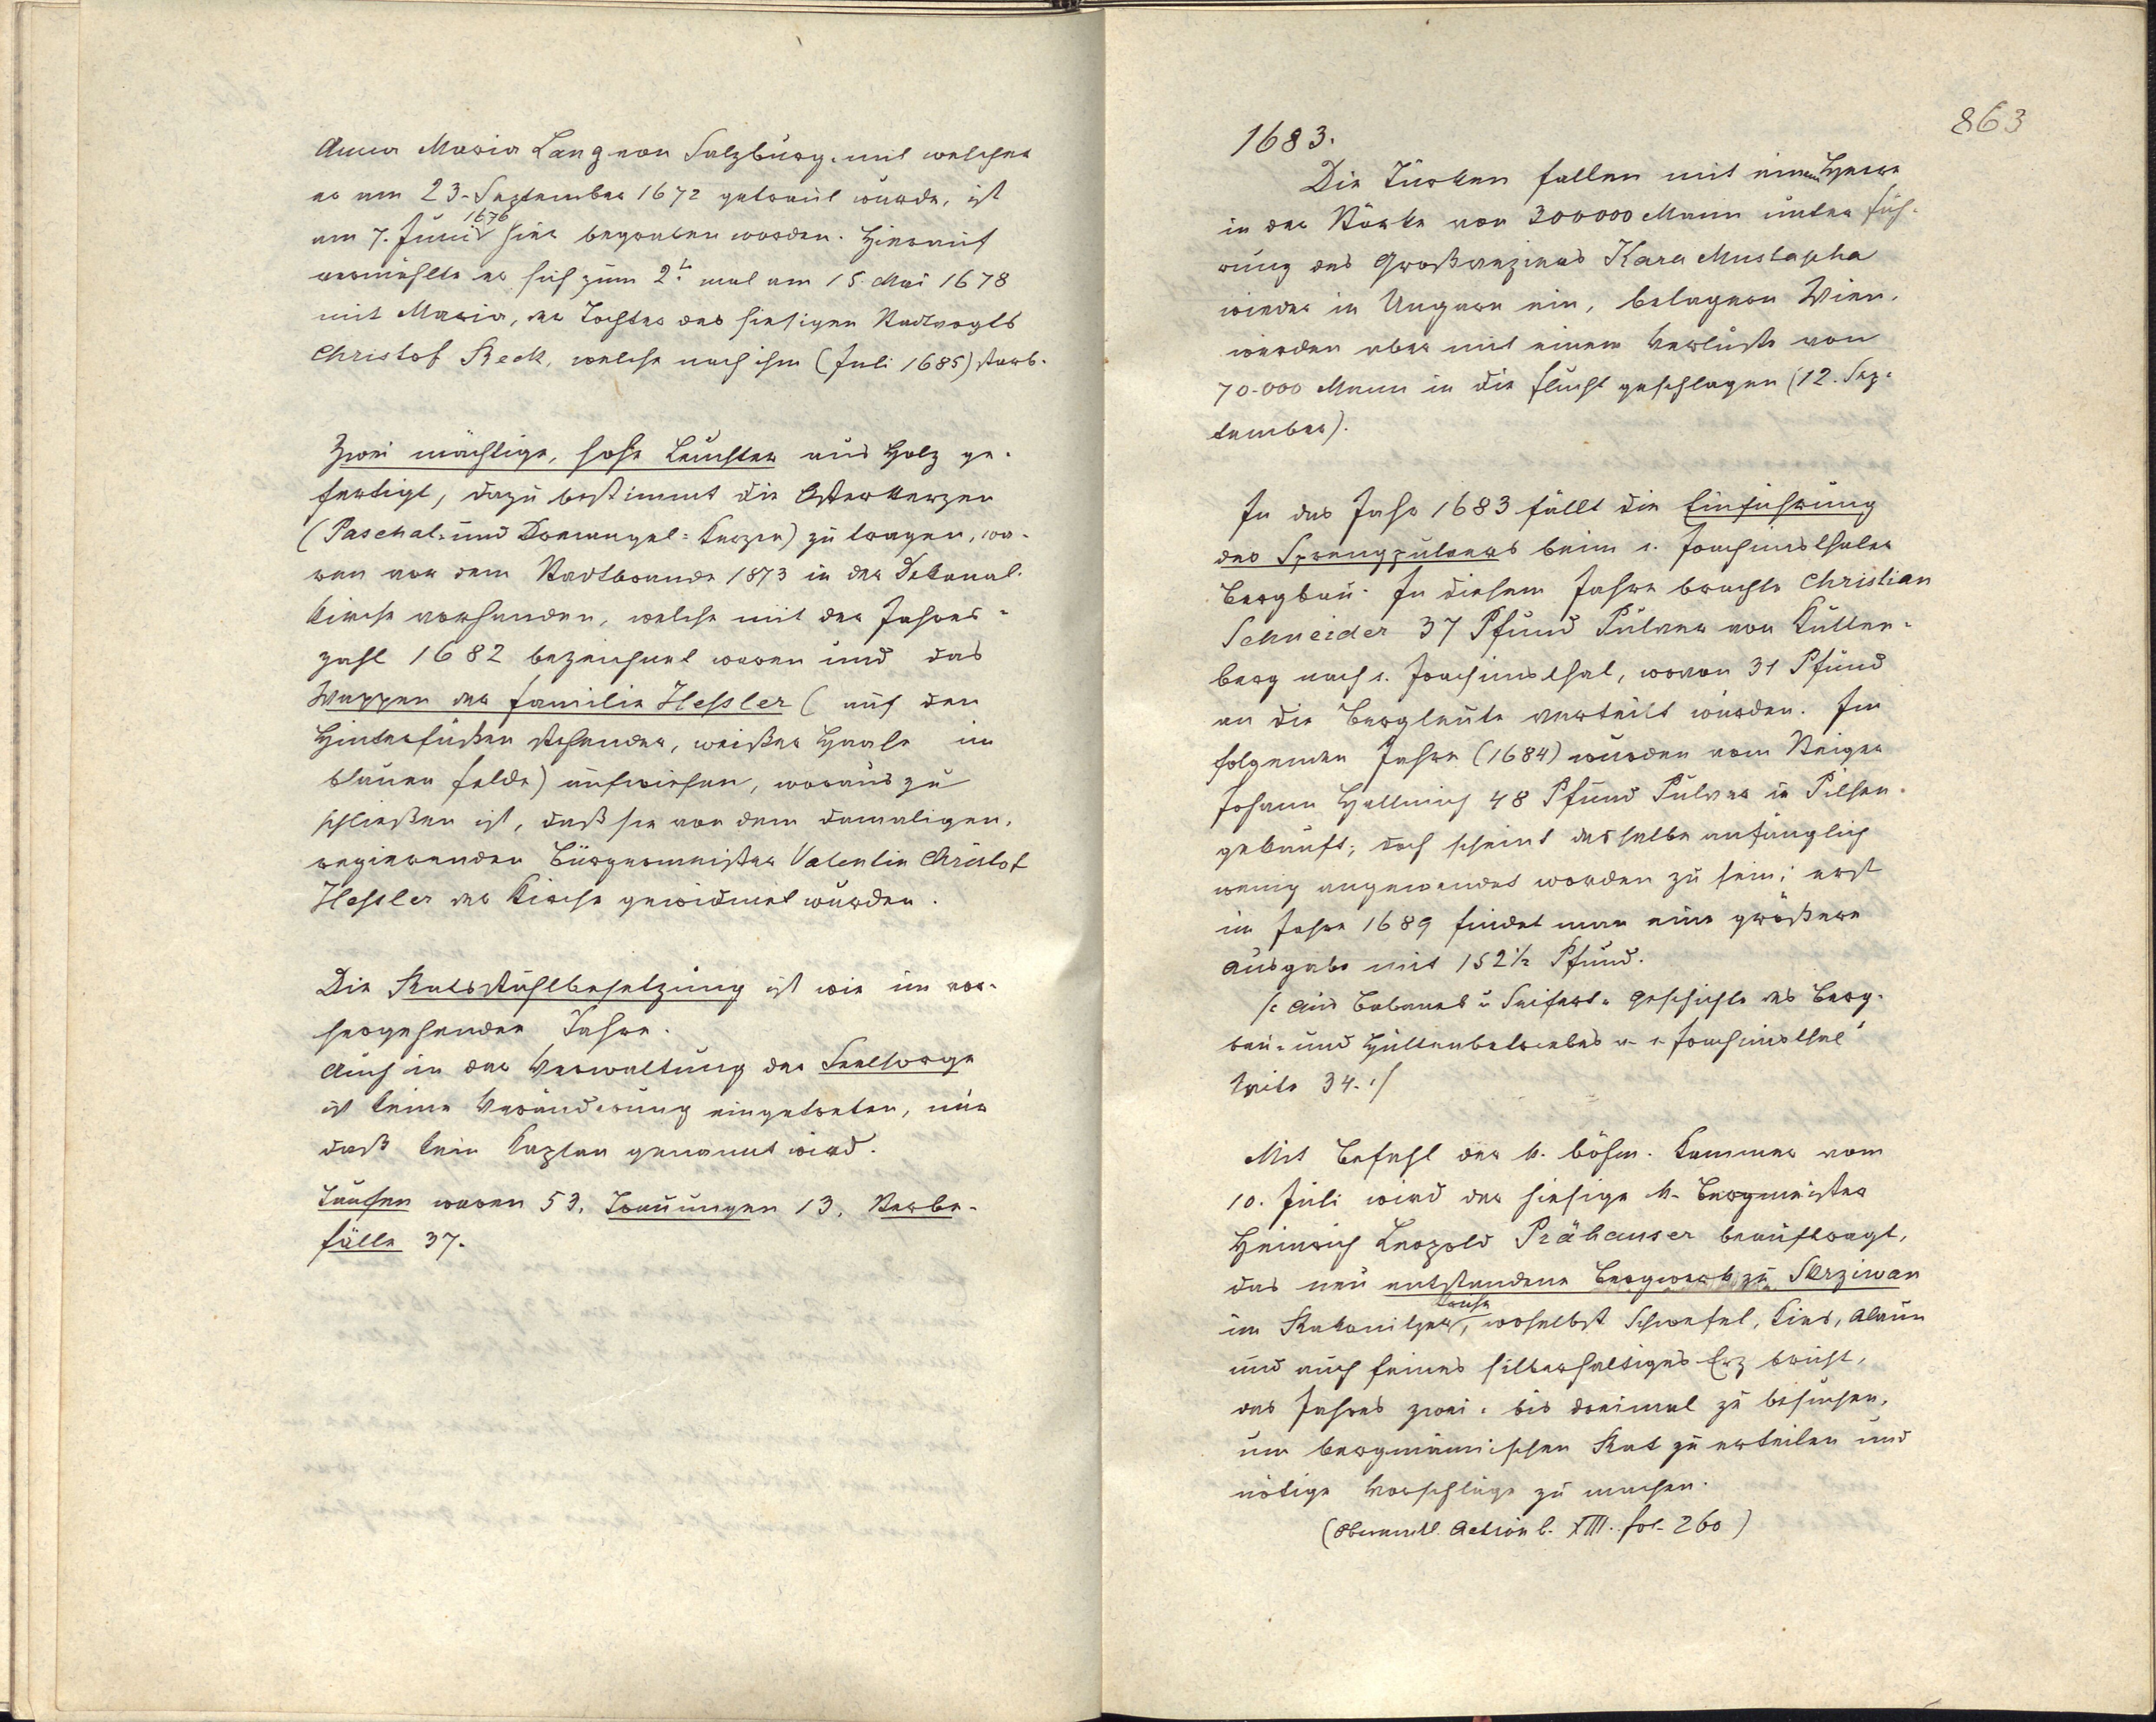 Anna Maria Lang von Salzburg, mit welcher
er am 23. September 1672 getraut wurde, ist
am 7. Juni 1676 hier begraben worden. Hierauf
vermählte er sich zum 2t. mal am 15. Mai 1678
mit Maria, der Tochter des hiesigen Stadtvogts
Christof Reck, welche nach ihm (Juli 1685) starb.
Zwei mächtige, hohe Leuchter aus Holz ge-
fertigt, dazu bestimmt die Osterkerzen
(Paschal- und Dreiangel-Kerzen) zu tragen, wa-
ren vor dem Stadtbrande 1873 in der Dekanal-
kirche vorhanden, welche mit der Jahres-
zahl 1682 bezeichnet waren und das
Wappen der Familie Hessler (auf den
Hinterfüßen stehender, weißer Hase im
blauen Felde) aufwiesen, woraus zu
schließen ist, daß sie von dem damaligen,
regierenden Bürgermeister Valentin Christof
Hessler der Kirche gewidmet wurden.
Die Ratsstuhlbesetzung ist wie im vor-
hergehenden Jahre.
Auch in der Verwaltung der Seelsorge
ist keine Veränderung eingetreten, nur
daß kein Kaplan genannt wird.
Taufen waren 53, Trauungen 13, Sterbe-
fälle 37.
863
1683.
Die Türken fallen mit einem Heere
in der Stärke von 300000 Mann unter Füh-
rung des Großveziers Kara Mustapha
wieder in Ungarn ein, belagern Wien,
werden aber mit einem Verluste von
70.000 Mann in die Flucht geschlagen (12. Sep-
tember).
In das Jahr 1683 fällt die Einführung
des Sprengpulvers beim s. Joachimsthaler
Bergbau. In diesem Jahre brachte Christian
Schneider 37 Pfund Pulver von Kutten-
berg nach s. Joachimsthal, wovon 31 Pfund
an die Bergleute verteilt wurden. Im
folgenden Jahre (1684) wurden vom Steiger
Johann Hellmich 48 Pfund Pulver in Pilsen
gekauft; doch scheint dasselbe anfänglich
wenig angewendet worden zu sein; erst
im Jahre 1689 findet man eine größere
Ausgabe mit 152 1/2 Pfund.
/: Aus Babanek u Seifert „Geschichte des Berg-
bau- und Hüttenbetriebes v. s. Joachimsthal“
Seite 34. :/
Mit Befehl der k. böhm. Kammer vom
10. Juli wird der hiesige k. Bergmeister
Heinrich Leopold Prähauser beauftragt,
das neu entstandene Bergwerk zu Skrziwan
im Rakonitzer Kreise, woselbst Schwefel, Kies, Alaun
und auch feines silberhaltiges Erz bricht,
des Jahres zwei- bis dreimal zu besuchen,
um bergmännischen Rat zu erteilen und
nötige Vorschläge zu machen.
(Oberamtl. Action b. XIII. fol. 260)